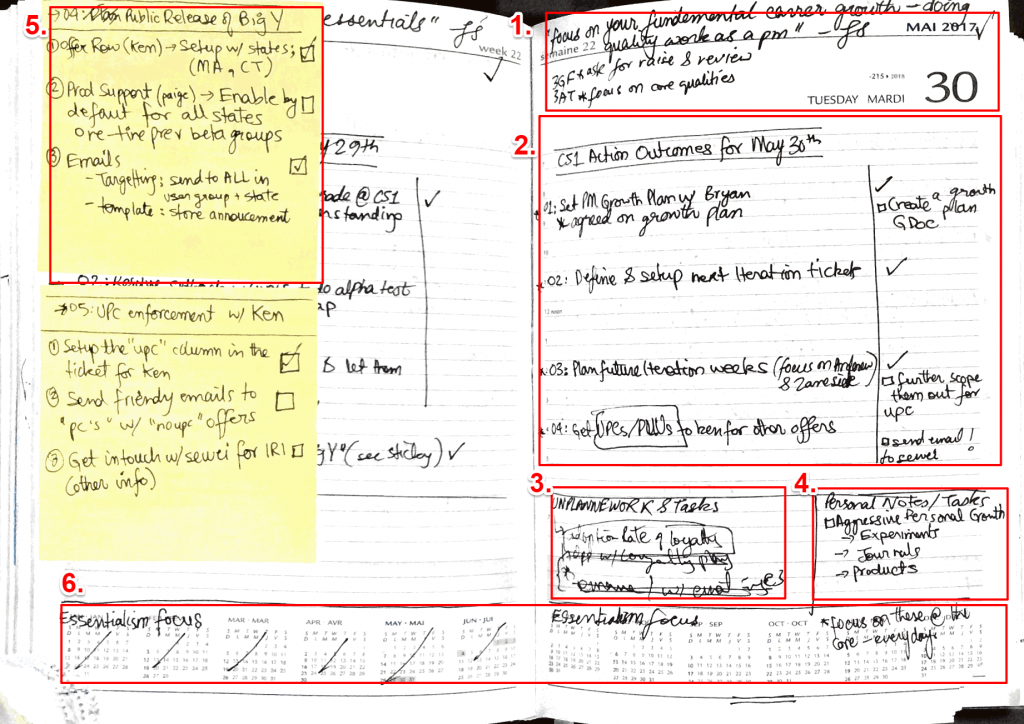 5.
→04: Public Release of Big Y
① Offer Row (Ken) → Setup w/ states;
(MA, CT)
② Prod Support (paige) → Enable by
default for all states
prev beta groups
③ Emails
- Targetting; send to ALL in
user group + state
- template: store annoucement
*05: UPC enforcement w/ Ken
① Setup the "upc" column in the
ticket for Ken
② Send friendly emails to
"pc's" w/ "no upc" offers
③ Get in touch w/ sewei for IRI
(other info)
essentials"
week 22
y 29th
@ CS1
standing
do alpha test
& let them
Y" (see sticky)
1.
"focus on your fundemental carrer growth - doing
quality work as a pm" -
semaine 22
MAI 2017
3GF * ask for raise & review
3AT * focus on core qualities
-215 • 2018
TUESDAY MARDI 30
2.
CS1 Action Outcomes for May 30th
01: Set PM Growth Plan w/ Bryan
* agreed on growth plan
Create a growth
plan
GDoc
02: Define & setup next Iteration ticket
03: Plan future Iteration weeks (focus on Andrew
& Zane side)
further scope
them out for
upc
04: Get UPCs/PLUs to ken for other offers
send email!
to sewei
3.
UNPLANNE WORK & Tasks
adoption rate of loyalty
4.
Personal Notes/Tasks
Aggressive Personal Growth
→ Experiments
→ Journals
→ Products
6.
Essentialism focus
MAR - MAR
APR AVR
MAY - MAI
JUN - JUI
Essentialism focus
SEP
OCT - OCT
* focus on these @ the
core - everyday!